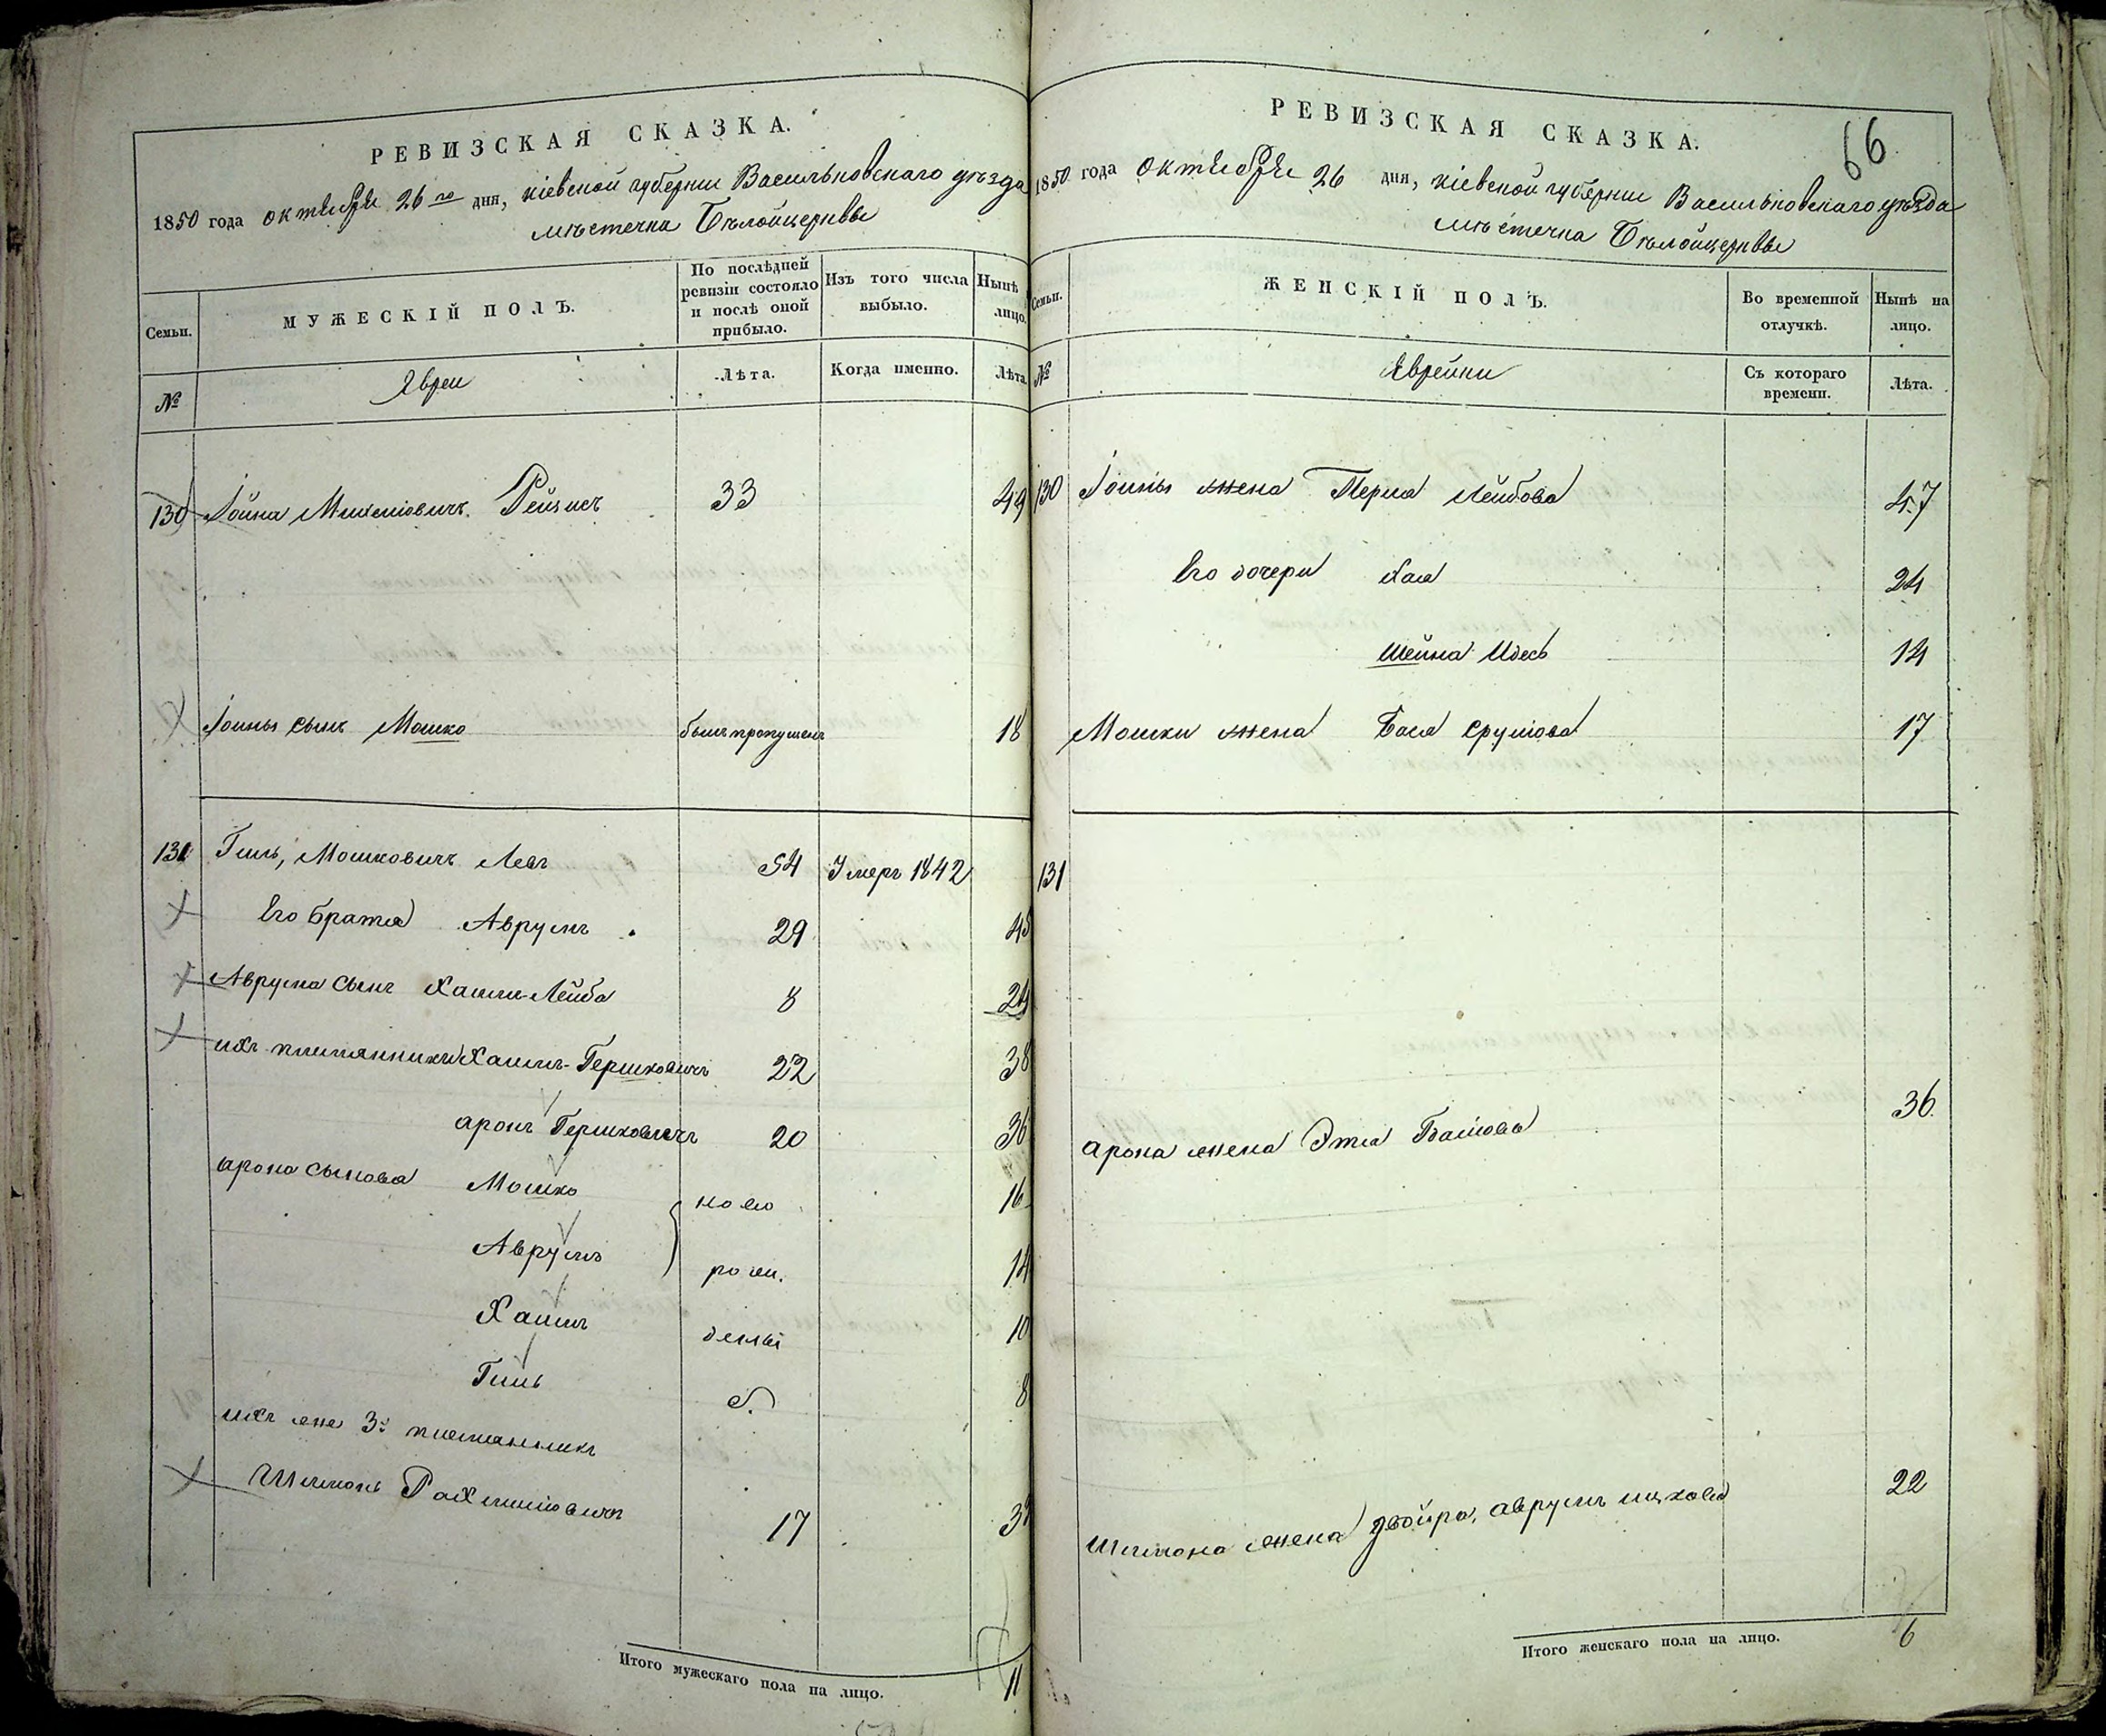 РЕВИЗСКАЯ СКАЗКА.
1850 года октября 26 го дня, кіевской губерніи Васильковскаго уѣзда
мѣстечка Бѣлойцеркви
Семьи.
МУЖЕСКІЙ ПОЛЪ.
По послѣдней ревизіи состояло и послѣ оной прибыло.
Изъ того числа выбыло.
Нынѣ лицо.
№
Евреи
Лѣта.
Когда именно.
Лѣта.
130 Іойна Михелiовичъ 33 49
Іойны сынъ Мошко былъ пропущенъ 18
131 Гиль, Мошковичъ Левъ 54 Умеръ 1842
Его братья Аврумъ 29 45
Аврума сынъ Хаимъ-Лейба 8 24
ихъ племянники Хаимъ-Гершковичъ 22 38
аронъ Гершковичъ 20 36
арона сыновья Мошко ново 16
Аврумъ рожд. 14
Хаимъ 10
Гиль 8
ихъ же 3й племянникъ
Шимонъ Рахмиліовичъ 17 33
Итого мужескаго пола на лицо. 11
РЕВИЗСКАЯ СКАЗКА.
66
1850 года октября 26 дня, кіевской губерніи Васильковскаго уѣзда
мѣстечка Бѣлойцеркви
Семьи.
ЖЕНСКІЙ ПОЛЪ.
Во временной отлучкѣ.
Нынѣ на лицо.
№
Еврейки
Съ котораго времени.
Лѣта.
130 Іойны жена Перля Лейбова 47
Его дочери Хая 24
Шейна Идесь 14
Мошки жена Бася Сруліова 17
131
арона жена Этля 36
Шимона жена Двойра, аврумъ ицкова 22
Итого женскаго пола на лицо. 6